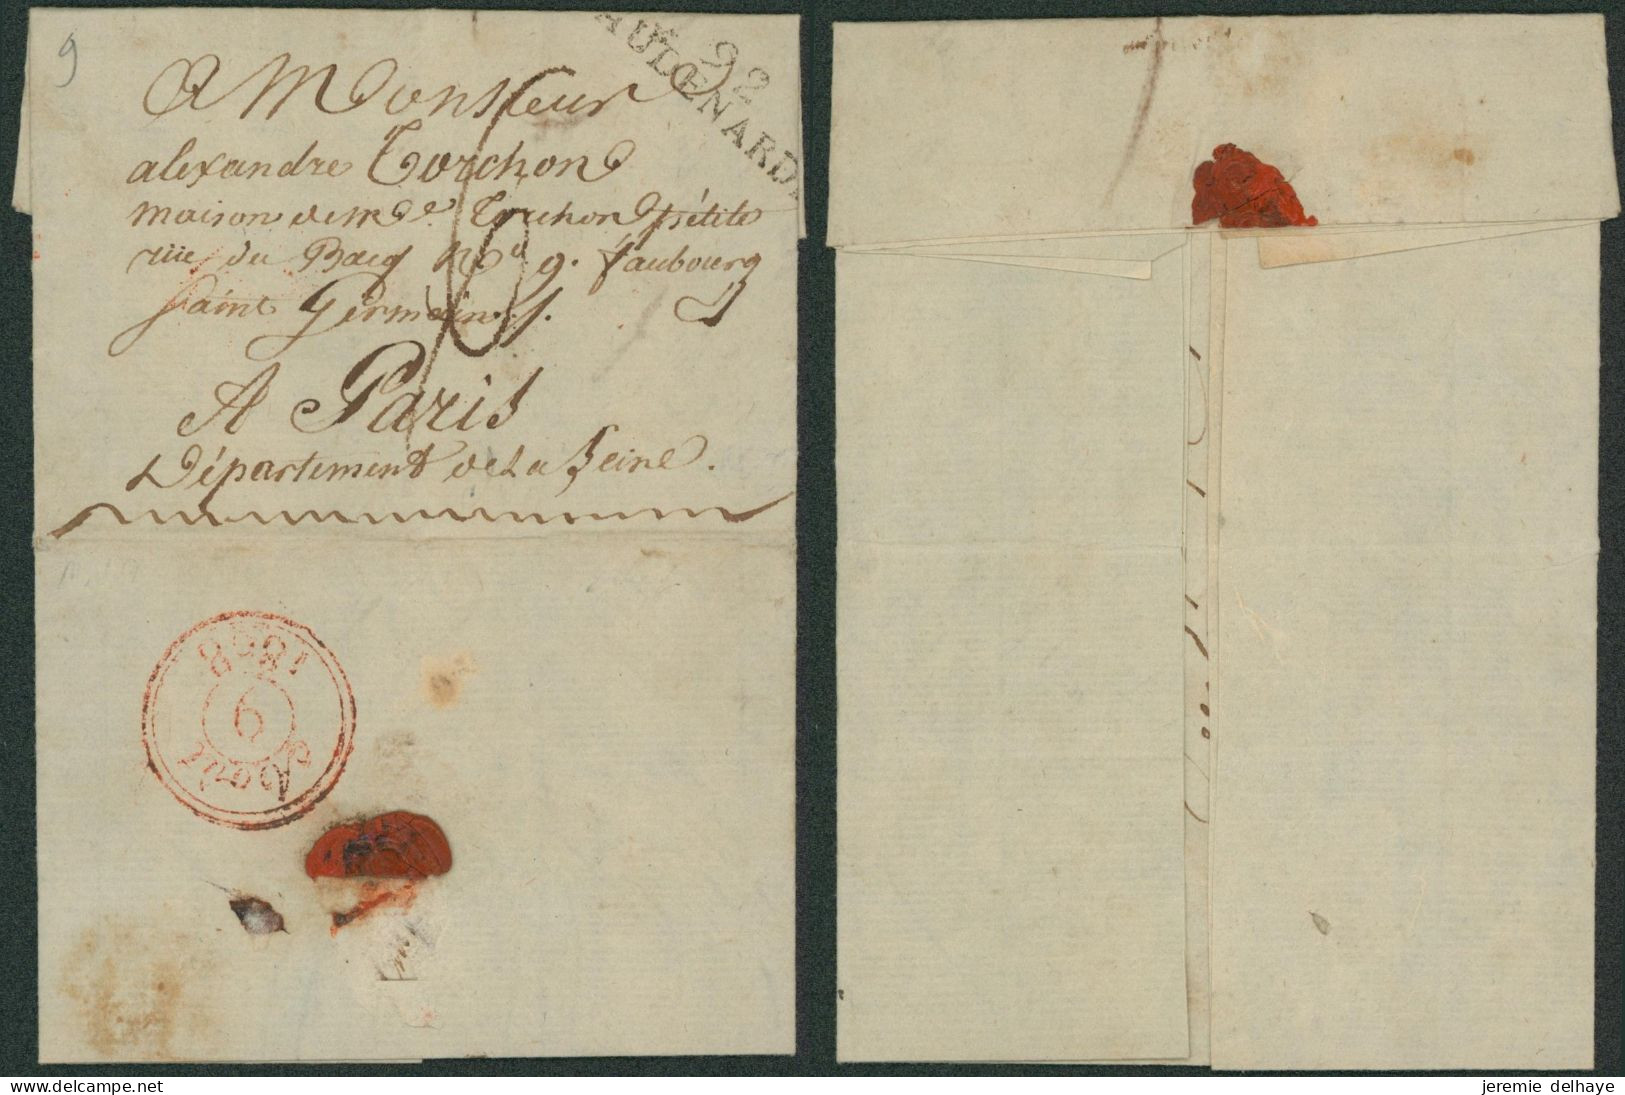 9
92
AUDENARD
A Monsieur
alexandre Torchon
maison de md.e Torchon pétite
rüe du Bacq No. 9. faubourg
saint Germain
A Paris
Département de La Seine.
1808
9
jeremie delhaye